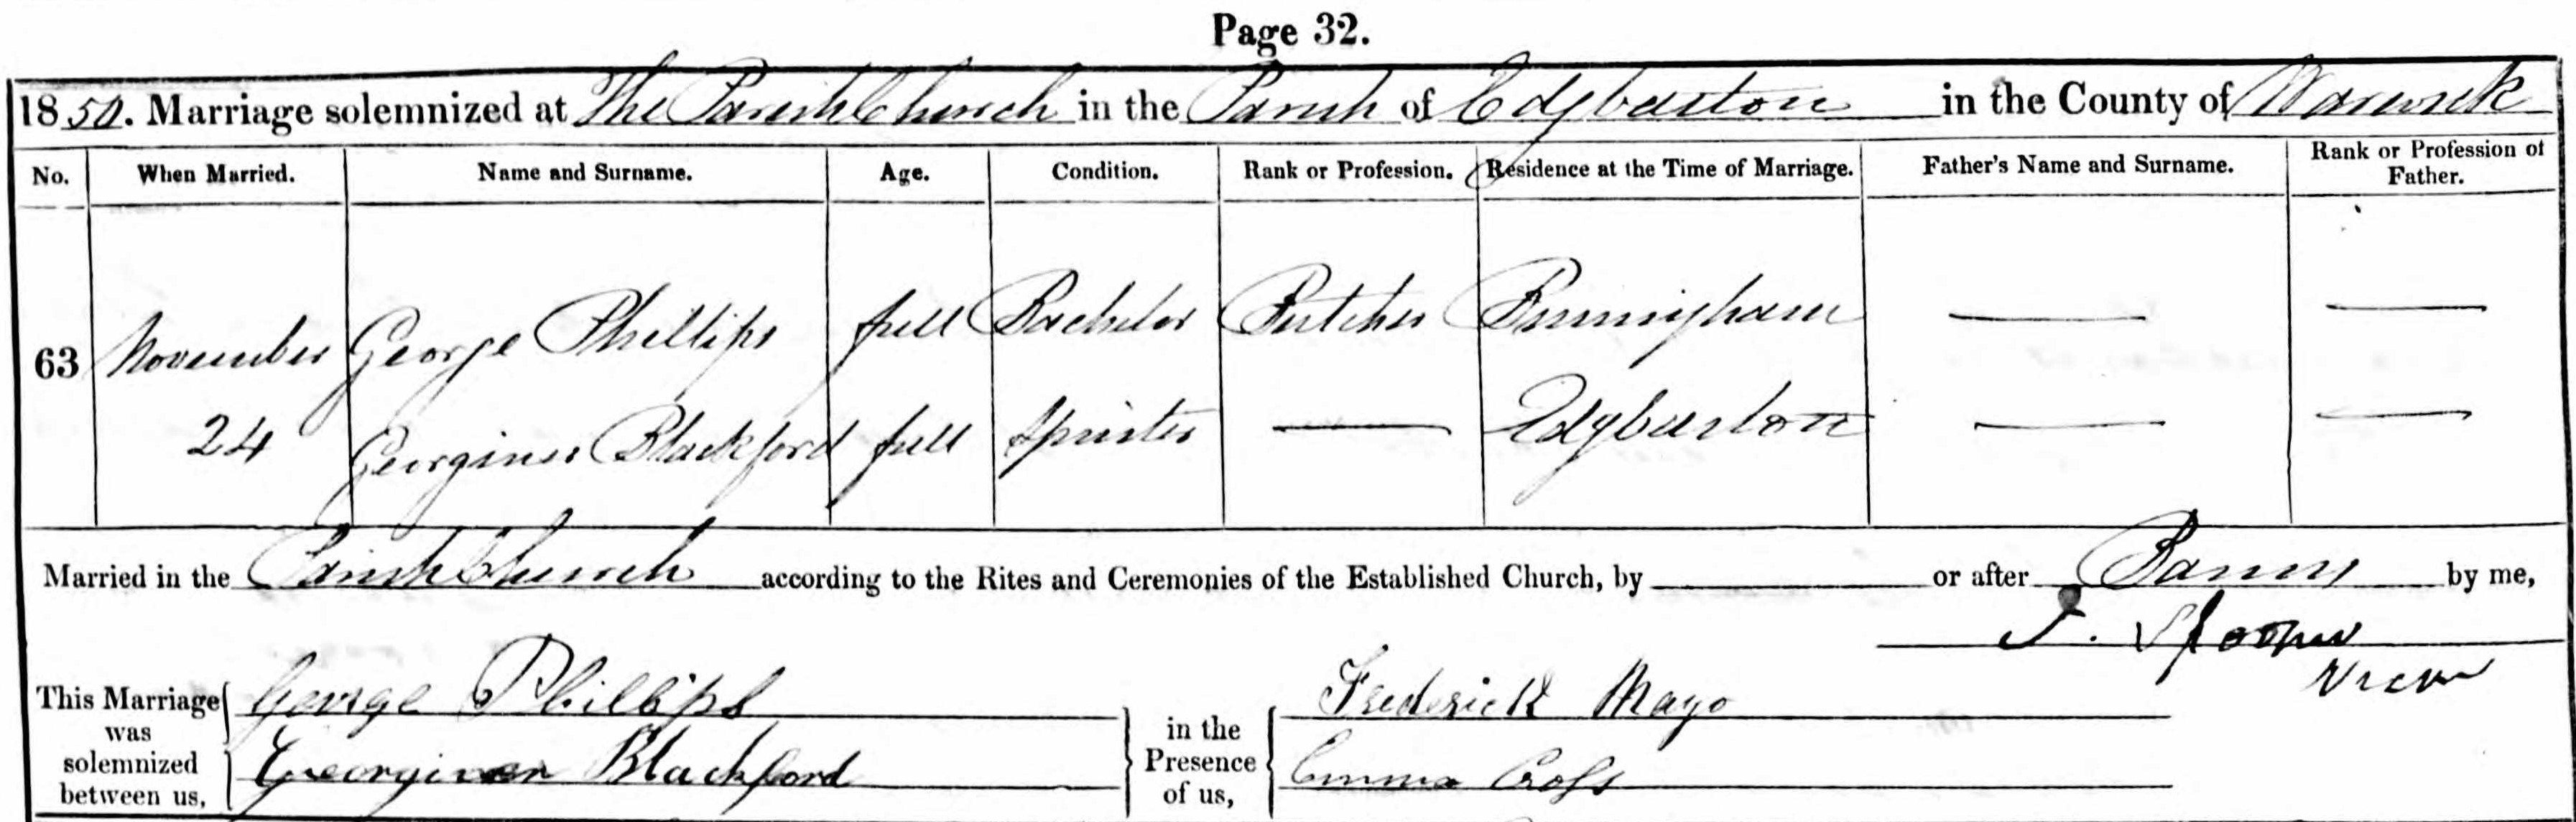 Page 32.
1850. Marriage solemnized at The Parish Church in the Parish of Edgbaston in the County of Warwick
No. When Married. Name and Surname. Age. Condition. Rank or Profession. Residence at the Time of Marriage. Father's Name and Surname. Rank or Profession of Father.
63 November George Phillips full Bachelor Butcher Birmingham — —
24 Georgina Blackford full Spinster — Edgbaston — —
Married in the Parish Church according to the Rites and Ceremonies of the Established Church, by — or after Banns by me,
I. Spooner
Vicar
This Marriage was solemnized between us,
George Phillips
Georgina Blackford
in the Presence of us,
Frederick Mayo
Emma Cross